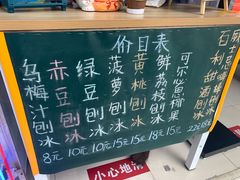 价目表
乌梅汁刨冰 8元
赤豆刨冰 10元
绿豆刨冰 10元
菠萝刨冰 15元
黄桃刨冰 15元
鲜荔枝刨冰 18元
15元
百利甜酒刨冰 22元
小心地滑